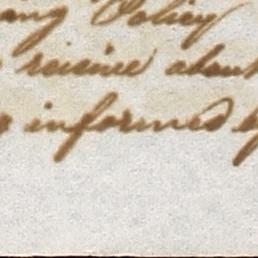 any Policy
receive about
informed by